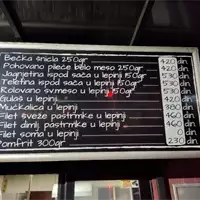 Bečka šnicla 250gr 420 din
Pohovano pileće belo meso 250gr 420 din
Jagnjetina ispod sača u lepinji 150gr 530 din
Teletina ispod sača u lepinji 150gr 530 din
Rolovano sv.meso u lepinji 150gr 530 din
Gulaš u lepinji 420 din
Mućkalica u lepinji 380 din
Filet sveže pastrmke u lepinji 460 din
Filet dimlj. pastrmke u lepinji 460 din
Filet soma u lepinji 0 din
Pomfrit 300gr 230 din